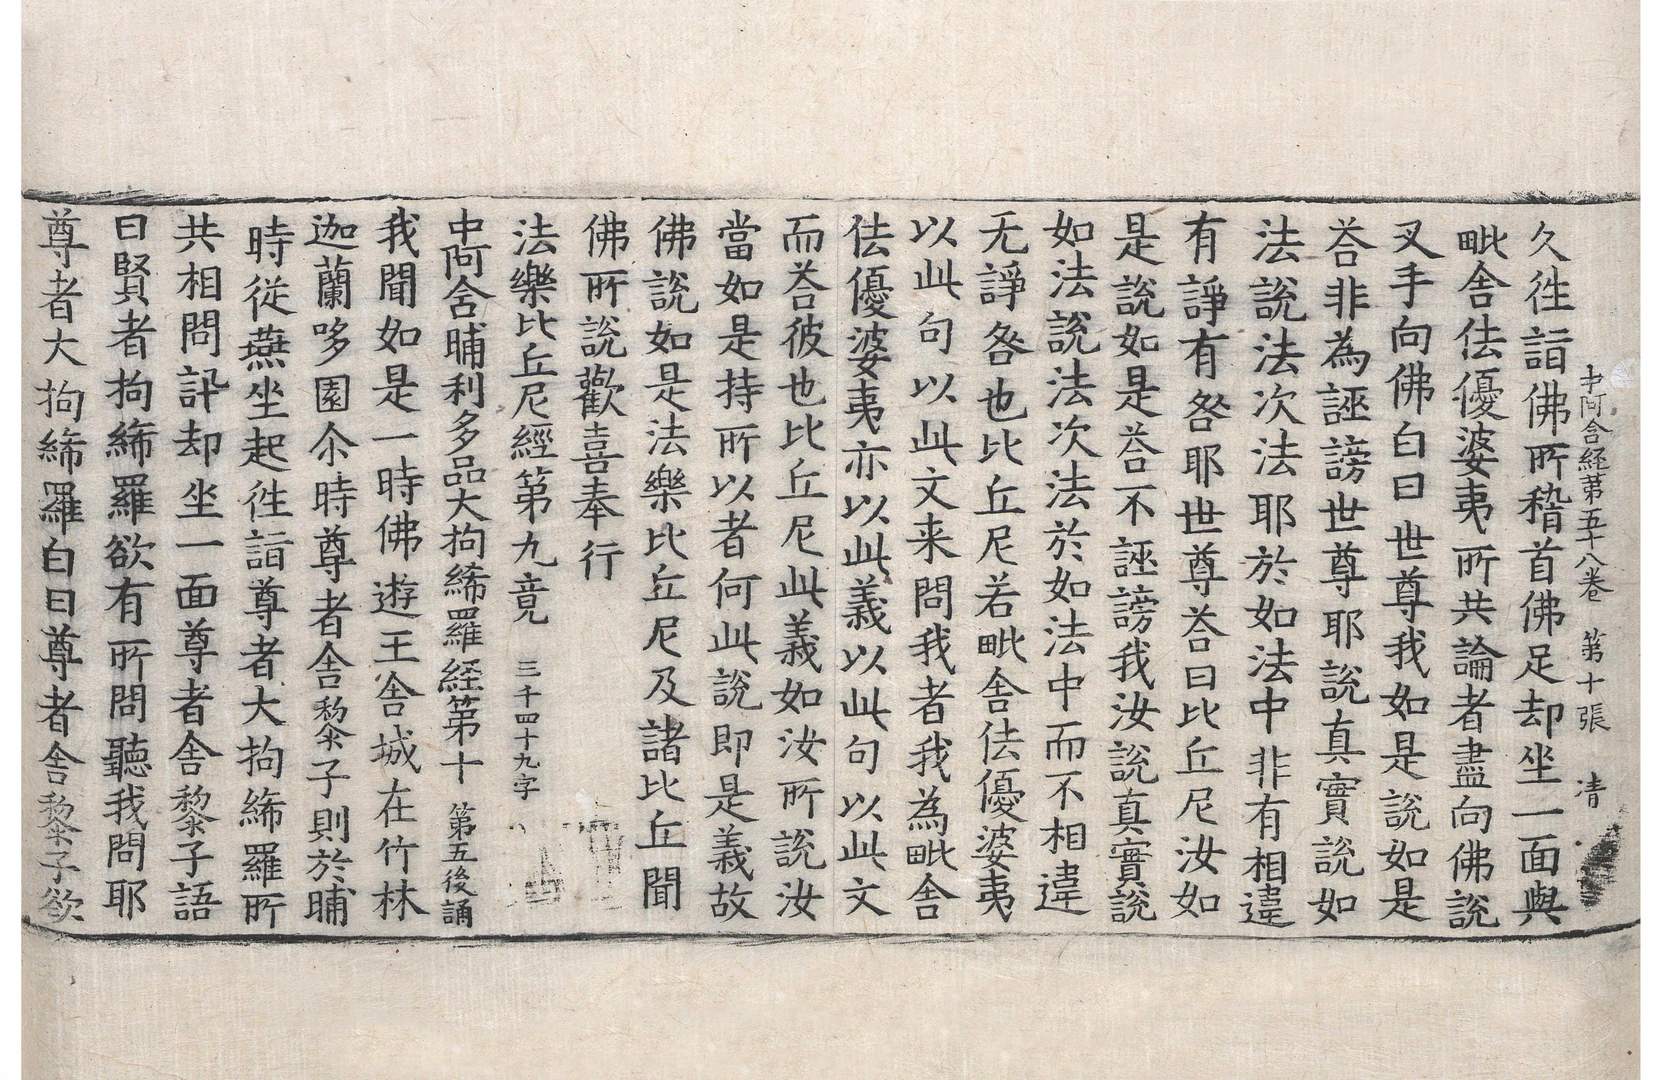 中阿含経第五十八卷　第十張　清
久徃詣佛所稽首佛足却坐一面與
毗舍佉優婆夷所共論者盡向佛說
叉手向佛白曰世尊我如是說如是
荅非為誣謗世尊耶說真實說如
法說法次法耶於如法中非有相違
有諍有咎耶世尊荅曰比丘尼汝如
是說如是荅不誣謗我汝說真實說
如法說法次法於如法中而不相違
无諍咎也比丘尼若毗舍佉優婆夷
以此句以此文来問我者我為毗舍
佉優婆夷亦以此義以此句以此文
而荅彼也比丘尼此義如汝所說汝
當如是持所以者何此說即是義故
佛說如是法樂比丘尼及諸比丘聞
佛所說歡喜奉行
法樂比丘尼經第九竟　三千四十九字
中阿含晡利多品大拘絺羅経第十　第五後誦
我聞如是一時佛遊王舍城在竹林
迦蘭哆園尒時尊者舍黎子則於晡
時從燕坐起徃詣尊者大拘絺羅所
共相問訊却坐一面尊者舍黎子語
曰賢者拘絺羅欲有所問聽我問耶
尊者大拘絺羅白曰尊者舍黎子欲